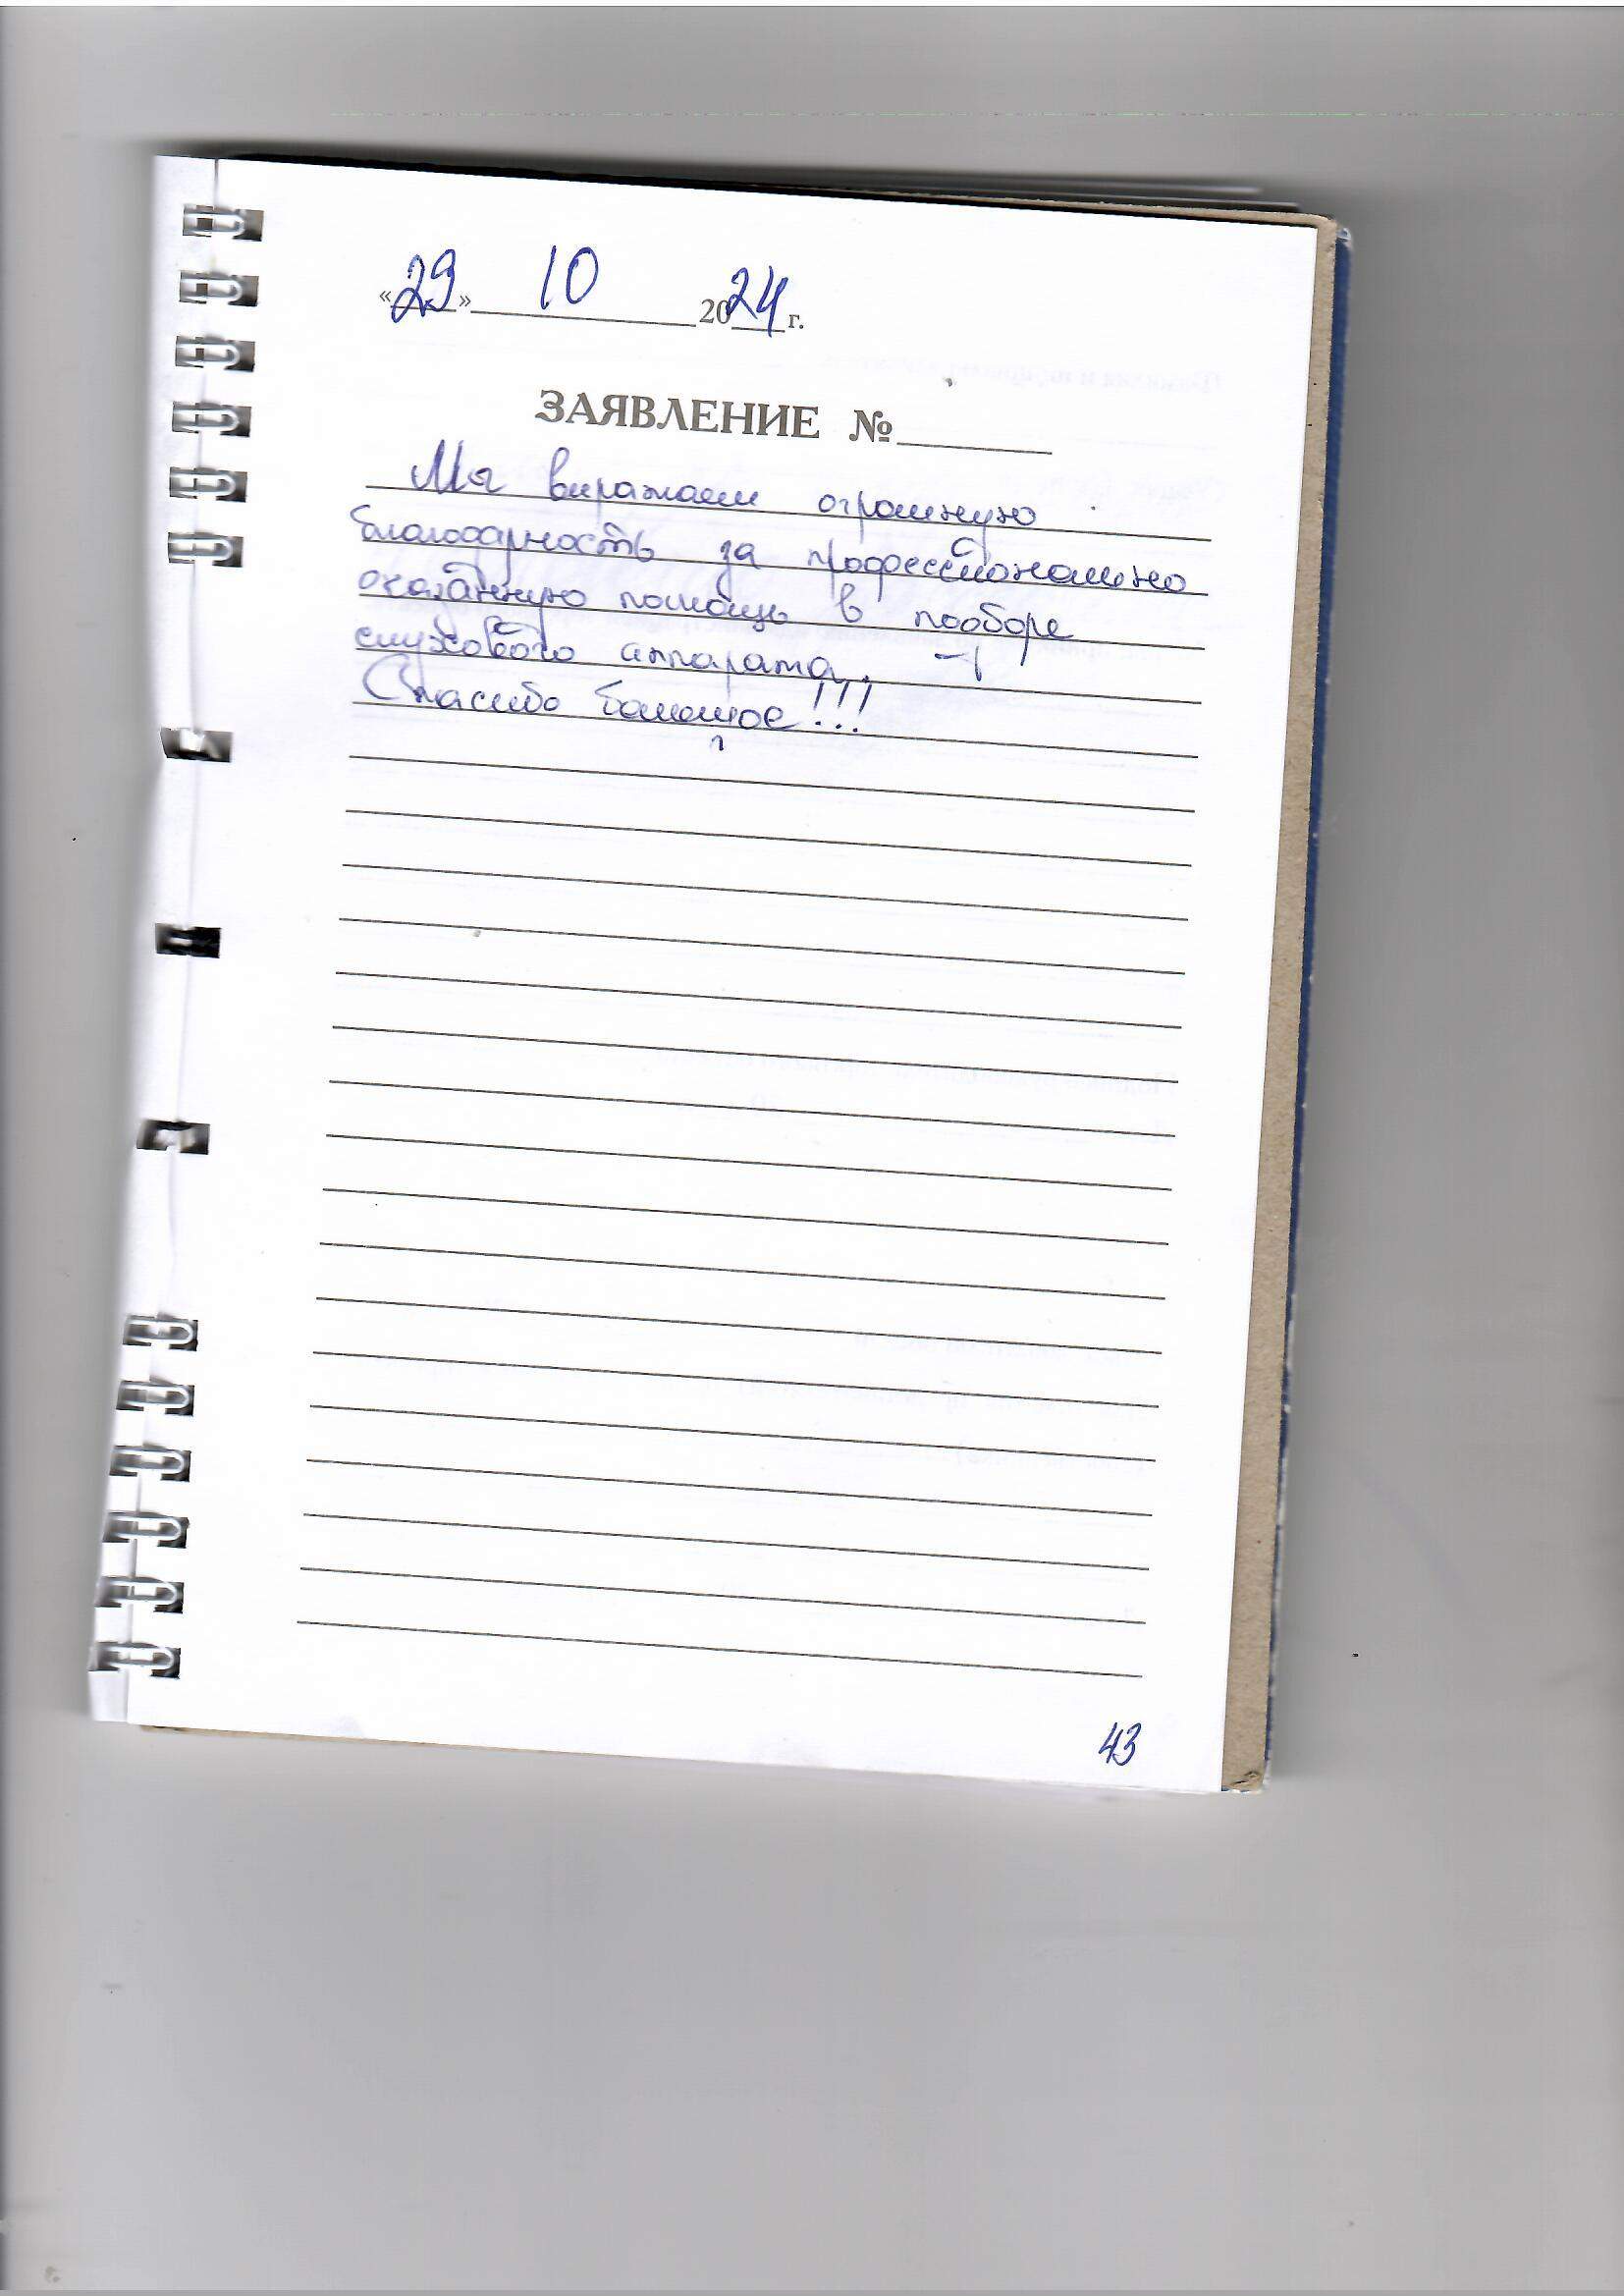 «29» 10 2024 г.
ЗАЯВЛЕНИЕ №
Мы выражаем огромную
благодарность за профессионально
оказанную помощь в подборе
слухового аппарата.
Спасибо большое!!!
43